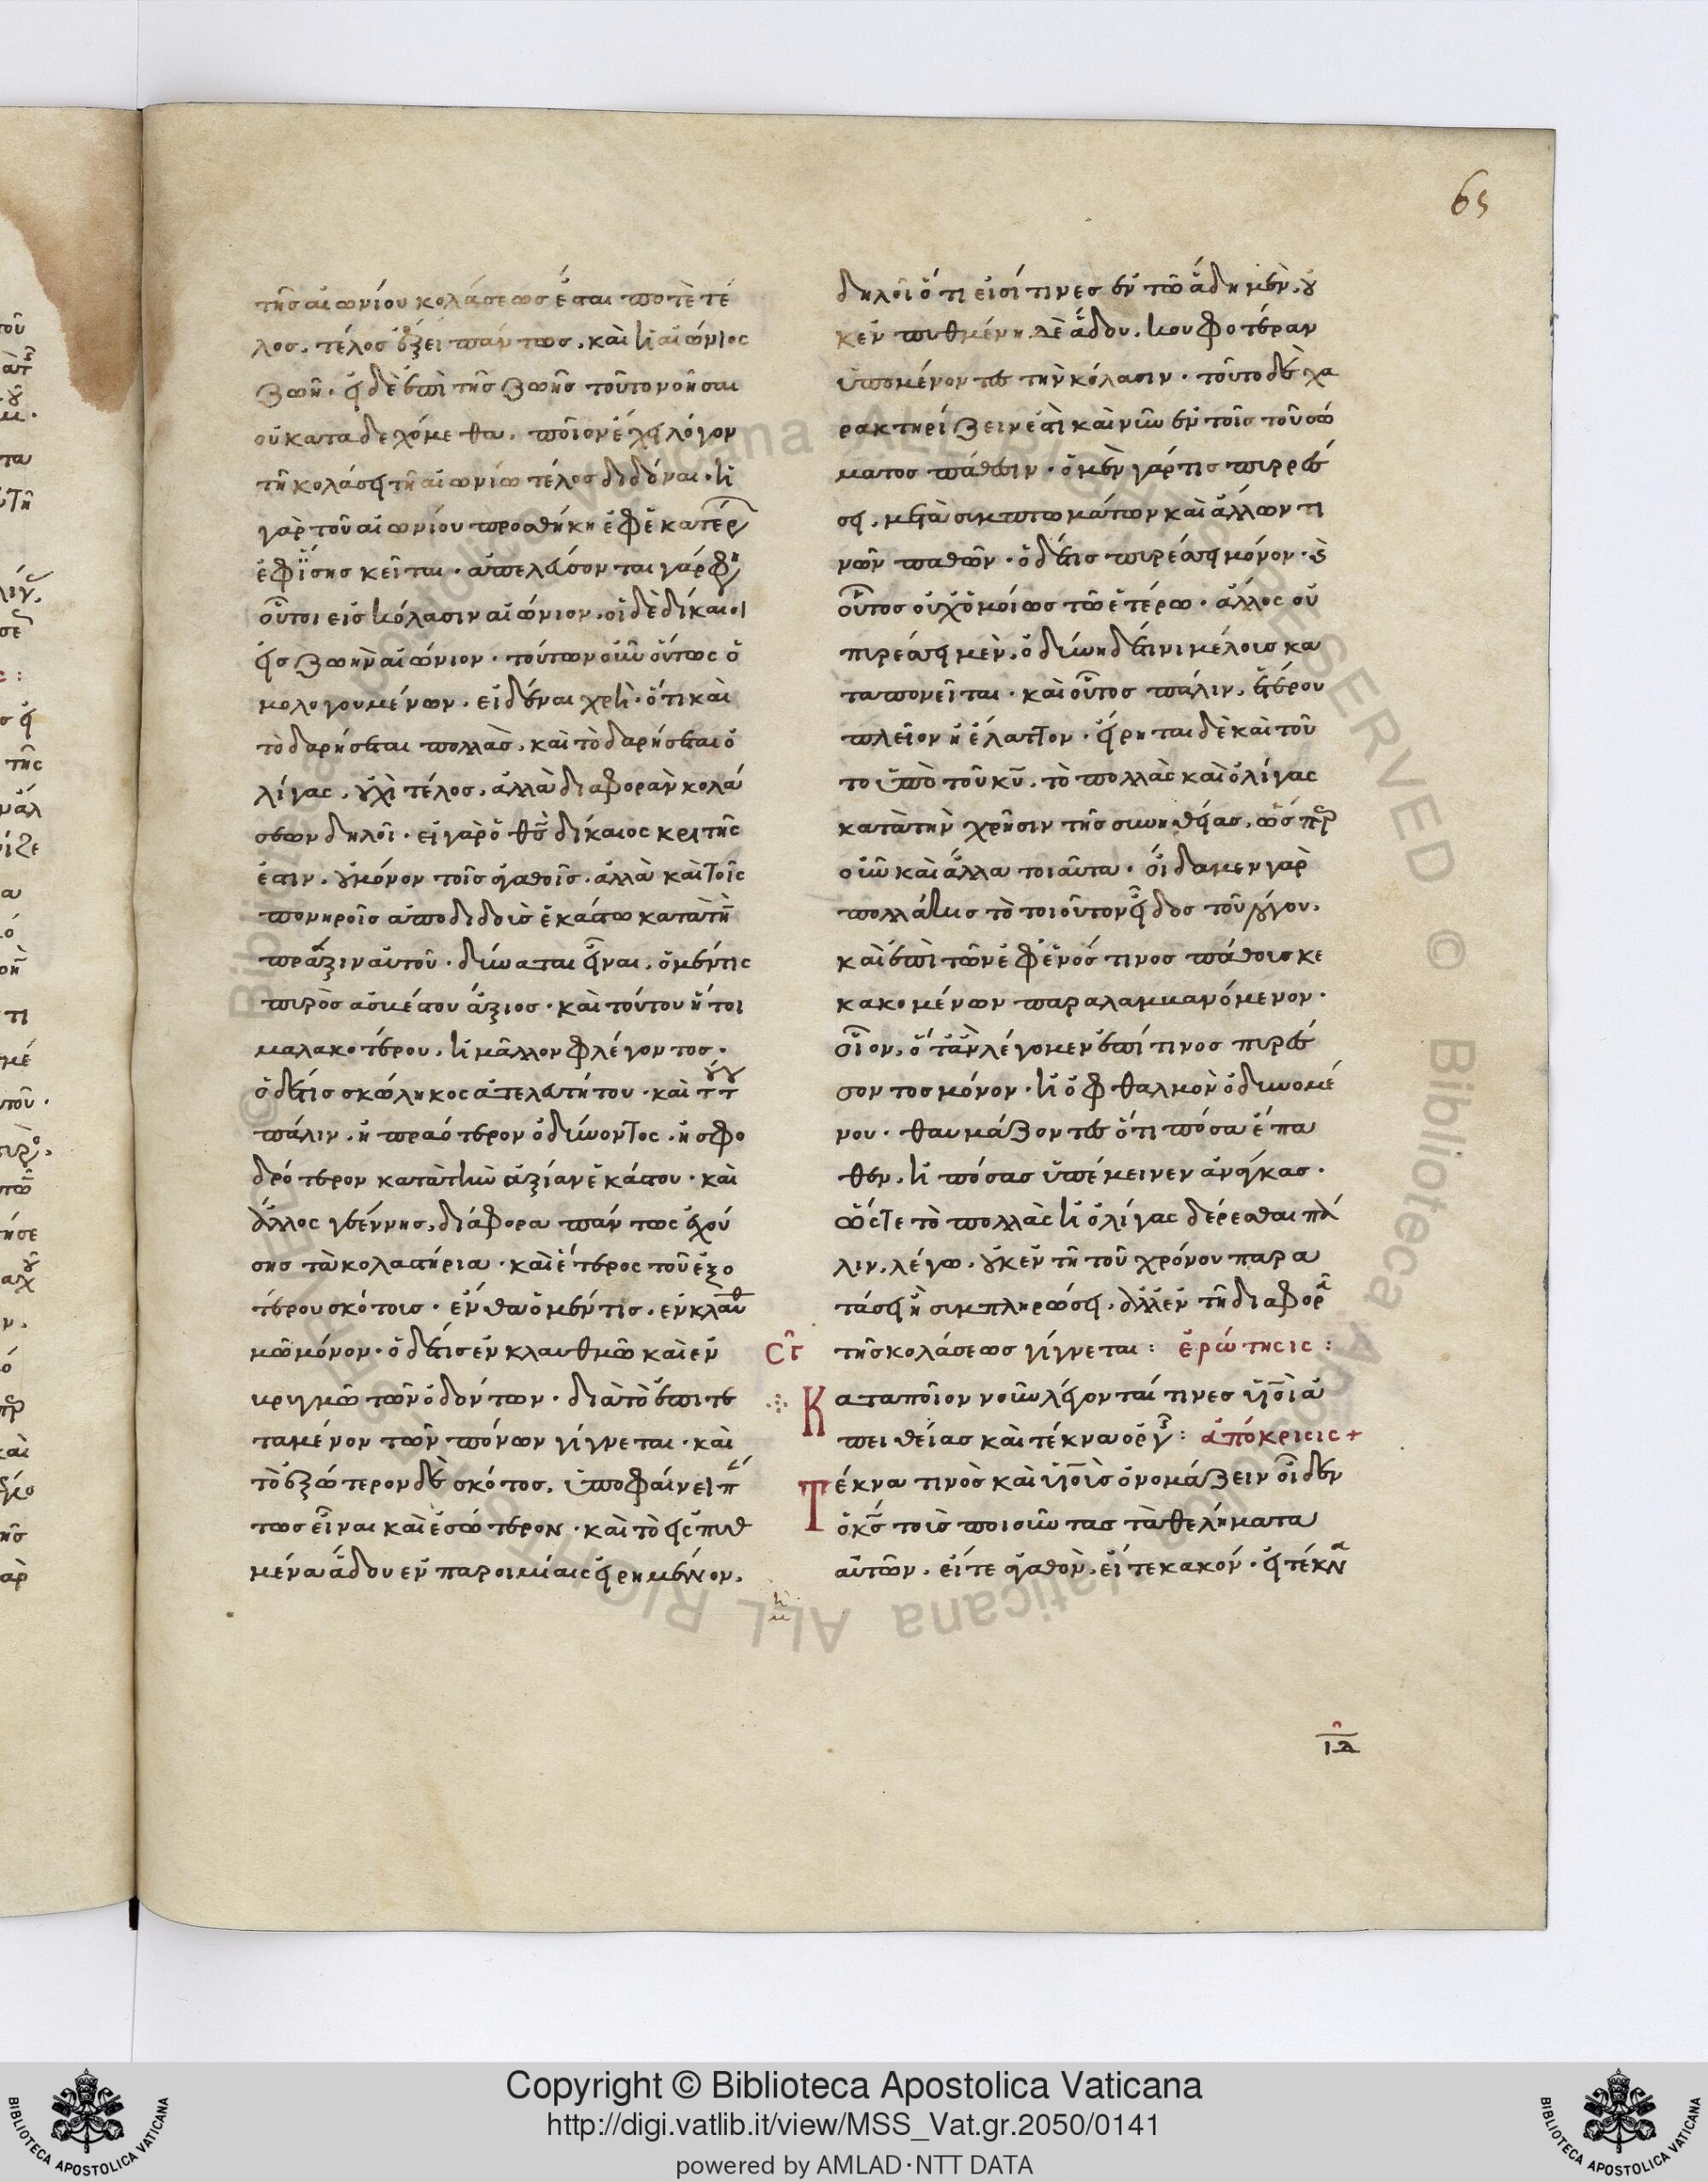 65
τῆς αἰωνίου κολάσεως ἔσται ποτὲ τέ
λος, τέλος ἕξει πάντως, καὶ ἡ αἰώνιος
ζωή· εἰ δὲ ἐπὶ τῆς ζωῆς τοῦτο νοῆσαι
οὐ καταδεχόμεθα, ποῖον ἔχει λόγον
τῆ κολάσει τῆ αἰωνίω τέλος διδόναι· ἡ
γὰρ τοῦ αἰωνίου προσθήκη ἐφ ἑκατέρ
ἐφΐσης κεῖται· ἀπελεύσονται γάρ φη
οὗτοι εἰς κόλασιν αἰώνιον, οἱ δὲ δίκαιοι
εἰς ζωὴν αἰώνιον· τούτων οὖν οὕτως ὁ
μολογουμένων, εἰδέναι χρὴ· ὅτι καὶ
τὸ δαρήσεται πολλὰς, καὶ τὸ δαρήσεται ὀ
λίγας, οὐχὶ τέλος, ἀλλὰ διαφορὰν κολά
σεων δηλοῖ· εἰ γὰρ ὁ θς δίκαιος κριτής
ἐστιν, οὐ μόνον τοῖς ἀγαθοῖς, ἀλλὰ καὶ τοῖς
πονηροῖς ἀποδιδοὺς ἑκάστω κατὰ τὴν
πράξιν αὐτοῦ· δύναται εἶναι, ὁ μέν τις
πυρὸς ἀσβέστου ἄξιος· καὶ τούτου ἤτοι
μαλακοτέρου, ἢ μᾶλλον φλέγοντος·
ὁ δέ τις σκώληκος ἀτελευτήτου· καὶ τούτου
πάλιν, ἢ πραότερον ὀδυνῶντος, ἢ σφο
δρότερον κατὰ τὴν ἀξίαν ἑκάστου· καὶ
ἄλλος γεέννης, διάφορα πάντως ἐχού
σης τὰ κολαστήρια· καὶ ἕτερος τοῦ ἐξο
τέρου σκότους· ἔνθα ὁ μέν τις, ἐν κλαυθ
μῶ μόνον· ὁ δέ τις ἐν κλαυθμῶ καὶ ἐν
βριγμῶ τῶν ὀδόντων· διὰ τὸ ἐπιτε
ταμένον τῶν πόνων γίγνεται· καὶ
τὸ ἐξώτερον δὲ σκότος, ὑποφαίνει πάν
τως εἶναι καὶ ἐσώτερον· καὶ τὸ εἰς πυθ
μένα ἅδου ἐν παροιμίαις εἰρημένον,
δηλοῖ ὅτι εἰσί τινες ἐν τῶ ἅδη μὲν, οὐ
κ ἐν πυθμένη δὲ ἅδου, κουφοτέραν
ὑπομένοντες τὴν κόλασιν· τοῦτο δὲ χα
ρακτηρίζειν ἐστὶ καὶ νῦν ἐν τοῖς τοῦ σώ
ματος πάθεσιν· ὁ μὲν γάρ τις πυρέσ
σει, μετὰ συμπτωμάτων καὶ ἄλλων τι
νῶν παθῶν· ὁ δέ τις πυρέσσει μόνον· καὶ
οὗτος οὐχ ὁμοίως τῶ ἑτέρω· ἄλλος οὐ
πυρέσσει μὲν, ὀδύνη δέ τινι μέλους κα
ταπονεῖται· καὶ οὗτος πάλιν, ἑτέρου
πλεῖον ἢ ἔλαττον· εἴρηται δὲ καὶ τοῦ
το ὑπὸ τοῦ κυ, τὸ πολλὰς καὶ ὀλίγας
κατὰ τὴν χρῆσιν τῆς συνηθείας, ὥσπερ
οὖν καὶ ἄλλα τοιαῦτα· οἴδαμεν γὰρ
πολλάκις τὸ τοιοῦτον εἶδος τοῦ λόγου,
καὶ ἐπὶ τῶν ἐφ ἑνός τινος πάθους κε
κακομένων παραλαμβανόμενον·
οἷον, ὅταν λέγομεν ἐπί τινος πυρέσ
σοντος μόνον· ἢ ὀφθαλμὸν ὀδυνομέ
νου· θαυμάζοντες ὅτι πόσα ἔπα
θεν, ἢ πόσας ὑπέμεινεν ἀνάγκας·
ὥστε τὸ πολλὰς ἢ ὀλίγας δέρεσθαι πά
λιν, λέγω, οὐκ ἐν τῆ τοῦ χρόνου παρα
τάσει ἢ συμπληρώσει, ἀλλ ἐν τῆ διαφορᾶ
τῆς κολάσεως γίγνεται: ἐρώτησις:
Κατα ποῖον νοῦν λέγονταί τινες υἱοὶ ἀ
πειθείας καὶ τέκνα ὀργῆς: ἀπόκρισις +
Τέκνα τινὸς καὶ υἱοὺς ὀνομάζειν οἶδεν
ὁ κς τοὺς ποιοῦντας τὰ θελήματα
αὐτῶν, εἴτε ἀγαθὸν, εἴτε κακόν· εἰ τέκν
Copyright © Biblioteca Apostolica Vaticana
http://digi.vatlib.it/view/MSS_Vat.gr.2050/0141
powered by AMLAD·NTT DATA